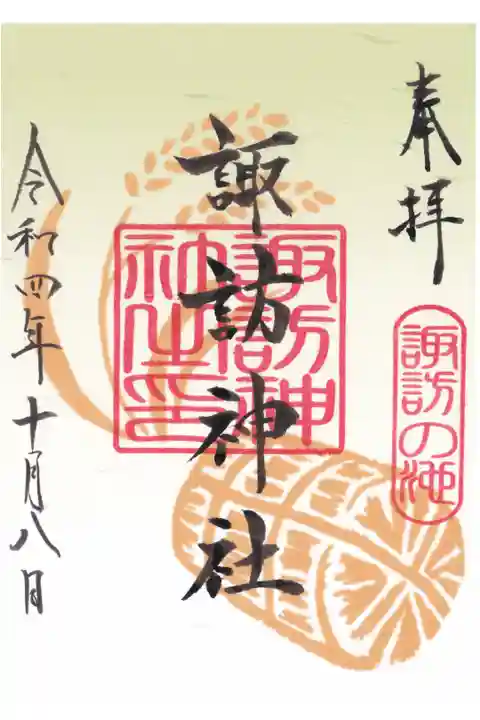 奉拝
諏訪の池
諏訪神社
諏訪神
社之印
令和四年十月八日